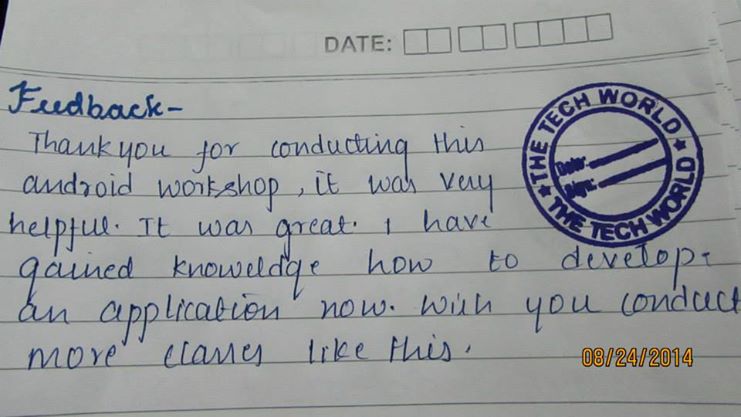 DATE:
Feedback-
Thank you for conducting this
android workshop, it was very
helpful. It was great. I have
gained knoweldge how to develop.
an application now. wish you conduct
more classes like this.
THE TECH WORLD
Date:-
Sign:-
THE TECH WORLD
08/24/2014